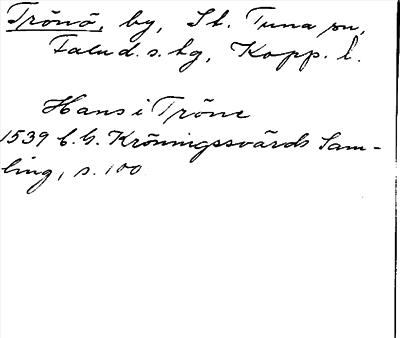 Trönö, by, St. Tuna sn,
Falu d. s. tg, Kopp. l.
Hans i Tröne
1539 b. G. Kröningssvärds Sam-
ling, s. 100